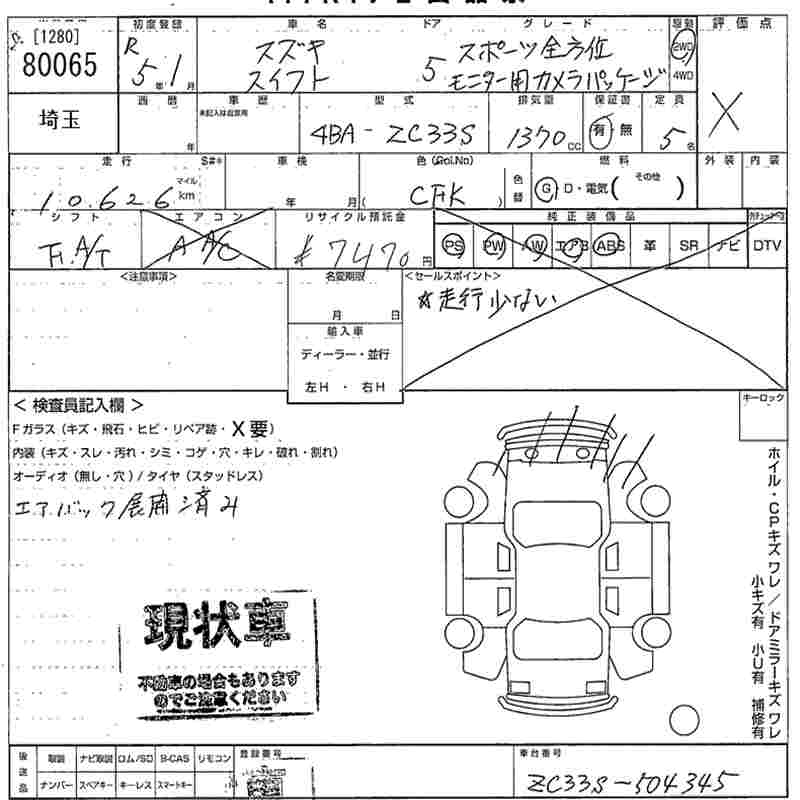 [1280]
80065
初度登録
R
5年1月
車名
スズキ
スイフト
ドア
5
グレード
スポーツ全方位
モニター用カメラパッケージ
駆動
2WD
4WD
評価点
X
埼玉
西暦
年
車歴
未記入は自家用
型式
4BA-ZC33S
排気量
1370cc
保証書
有・無
定員
5名
走行
10.626
マイル
km
S#*
車検
年 月
色(Col.No)
( CFK )
色替
燃料
G・D・電気( その他 )
外装
内装
シフト
Fi.A/T
エアコン
A A/C
リサイクル預託金
¥7470円
純正装備品
PS PW AW エアB ABS 革 SR ナビ DTV
<注意事項>
名変期限
月 日
輸入車
ディーラー・並行
左H ・ 右H
<セールスポイント>
☆走行少ない
キーロック
< 検査員記入欄 >
Fガラス(キズ・飛石・ヒビ・リペア跡・X要)
内装(キズ・スレ・汚れ・シミ・コゲ・穴・キレ・破れ・割れ)
オーディオ(無し・穴)/タイヤ(スタッドレス)
エアバック展開済み
現状車
不動車の場合もあります
のでご注意ください
ホイル・CPキズ ワレ/ドアミラーキズ ワレ
小キズ有 小U有 補修有
後送品
取説 ナビ取説 ロム/SD B-CAS リモコン
ナンバー スペアキー キーレス スマートキー
登録番号
車台番号
ZC33S-504345